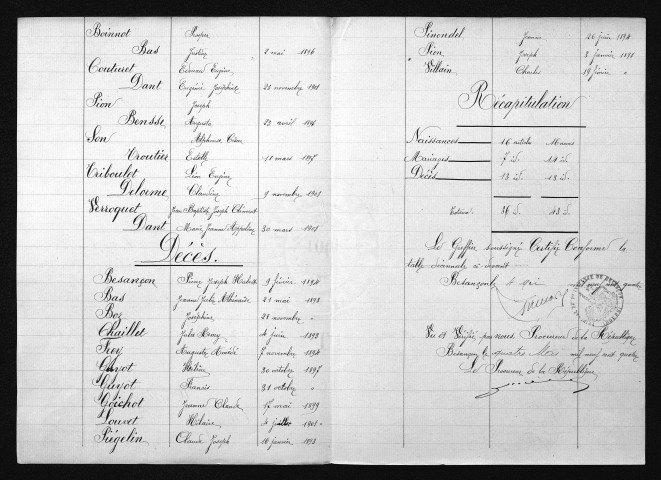 Boinnot Prosper
Bas Justine 2 mai 1896
Couturet Edmond Eugène
Dant Eugénie Joséphine 21 novembre 1901
Pion Joseph
Bensse Augusta 23 avril 1896
Son Alphonse
Croutier Estelle 11 mars 1897
Triboulet Léon Eugène
Delorme Claudine 9 novembre 1901
Verroquet Jean Baptiste Joseph Clément
Dant Marie Jeanne Appoline 30 mars 1901
Décès.
Besançon Pierre Joseph Hubert 9 février 1894
Bas Jeanne Julie Athénaïse 21 mai 1898
Bos Joséphine 28 novembre "
Chaillet Jules Rémy 4 juin 1893
Frey Auguste 7 novembre 1894
Guyot 30 octobre 1897
Guyot Francis 31 octobre "
Goichot Jeanne Claude 17 mai 1899
Louvet Hilaire 4 juillet 1901
Piégelin Claude Joseph 16 janvier 1893
Pinondel Jeanne 26 juin 1894
Pion Joseph 3 janvier 1898
Villain Charles 19 février "
Récapitulation
Naissances 16 articles 16 noms
Mariages 7 id. 14 id.
Décès 13 id. 13 id.
Totaux 36 id. 43 id.
Le Greffier soussigné Certifie Conforme la
table décennale ci-devant
Besançon, le
Vu et Vérifié par nous, Procureur de la République
Besançon, le quatre Mars mil neuf cent quatre
Le Procureur de la République